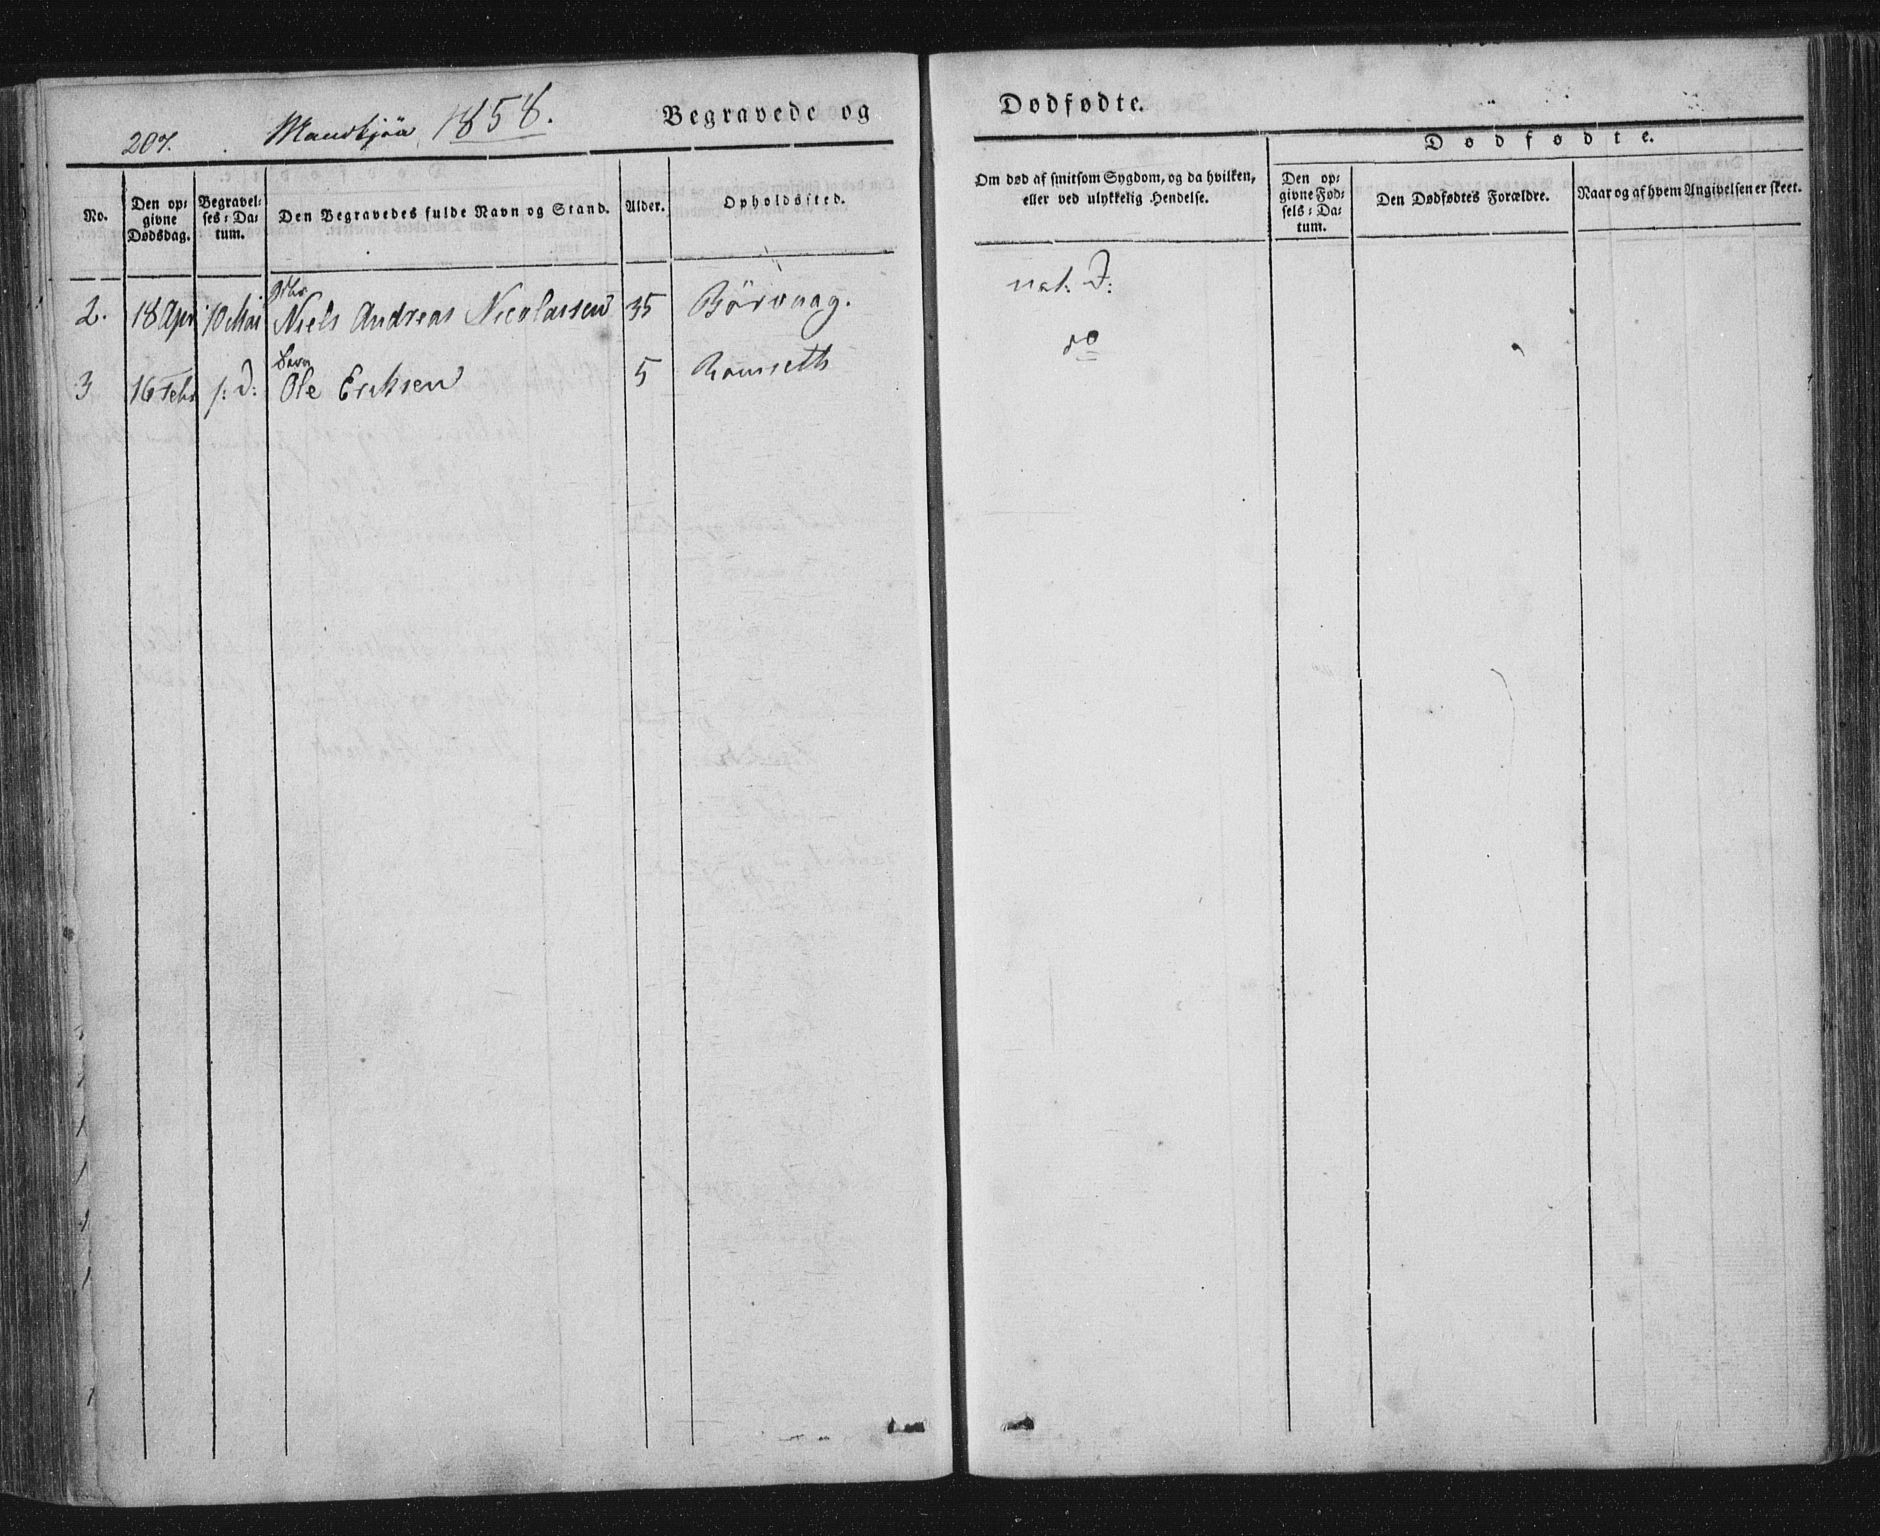 207. Mandkjøn 1858. Begravede og Dødfødte.
Dødfødte.
No.
Den op:
givne
Dødsdag.
Begravel:
ses: Da:
tum.
Den Begravedes fulde Navn og Stand.
Alder.
Opholdssted.
Om død af smitsom Sygdom, og da hvilken,
eller ved ulykkelig Hendelse.
Den op:
givne Fød:
sels: Da:
tum.
Den Dødfødtes Forældre.
Naar og af hvem Angivelsen er skeet.
2. 18 Apr 10 Mai Niels Andreas Nicolaisen 35 Børvaag. nat: D:
Barn
3 16 Febr s: D: Ole Eriksen 5 do